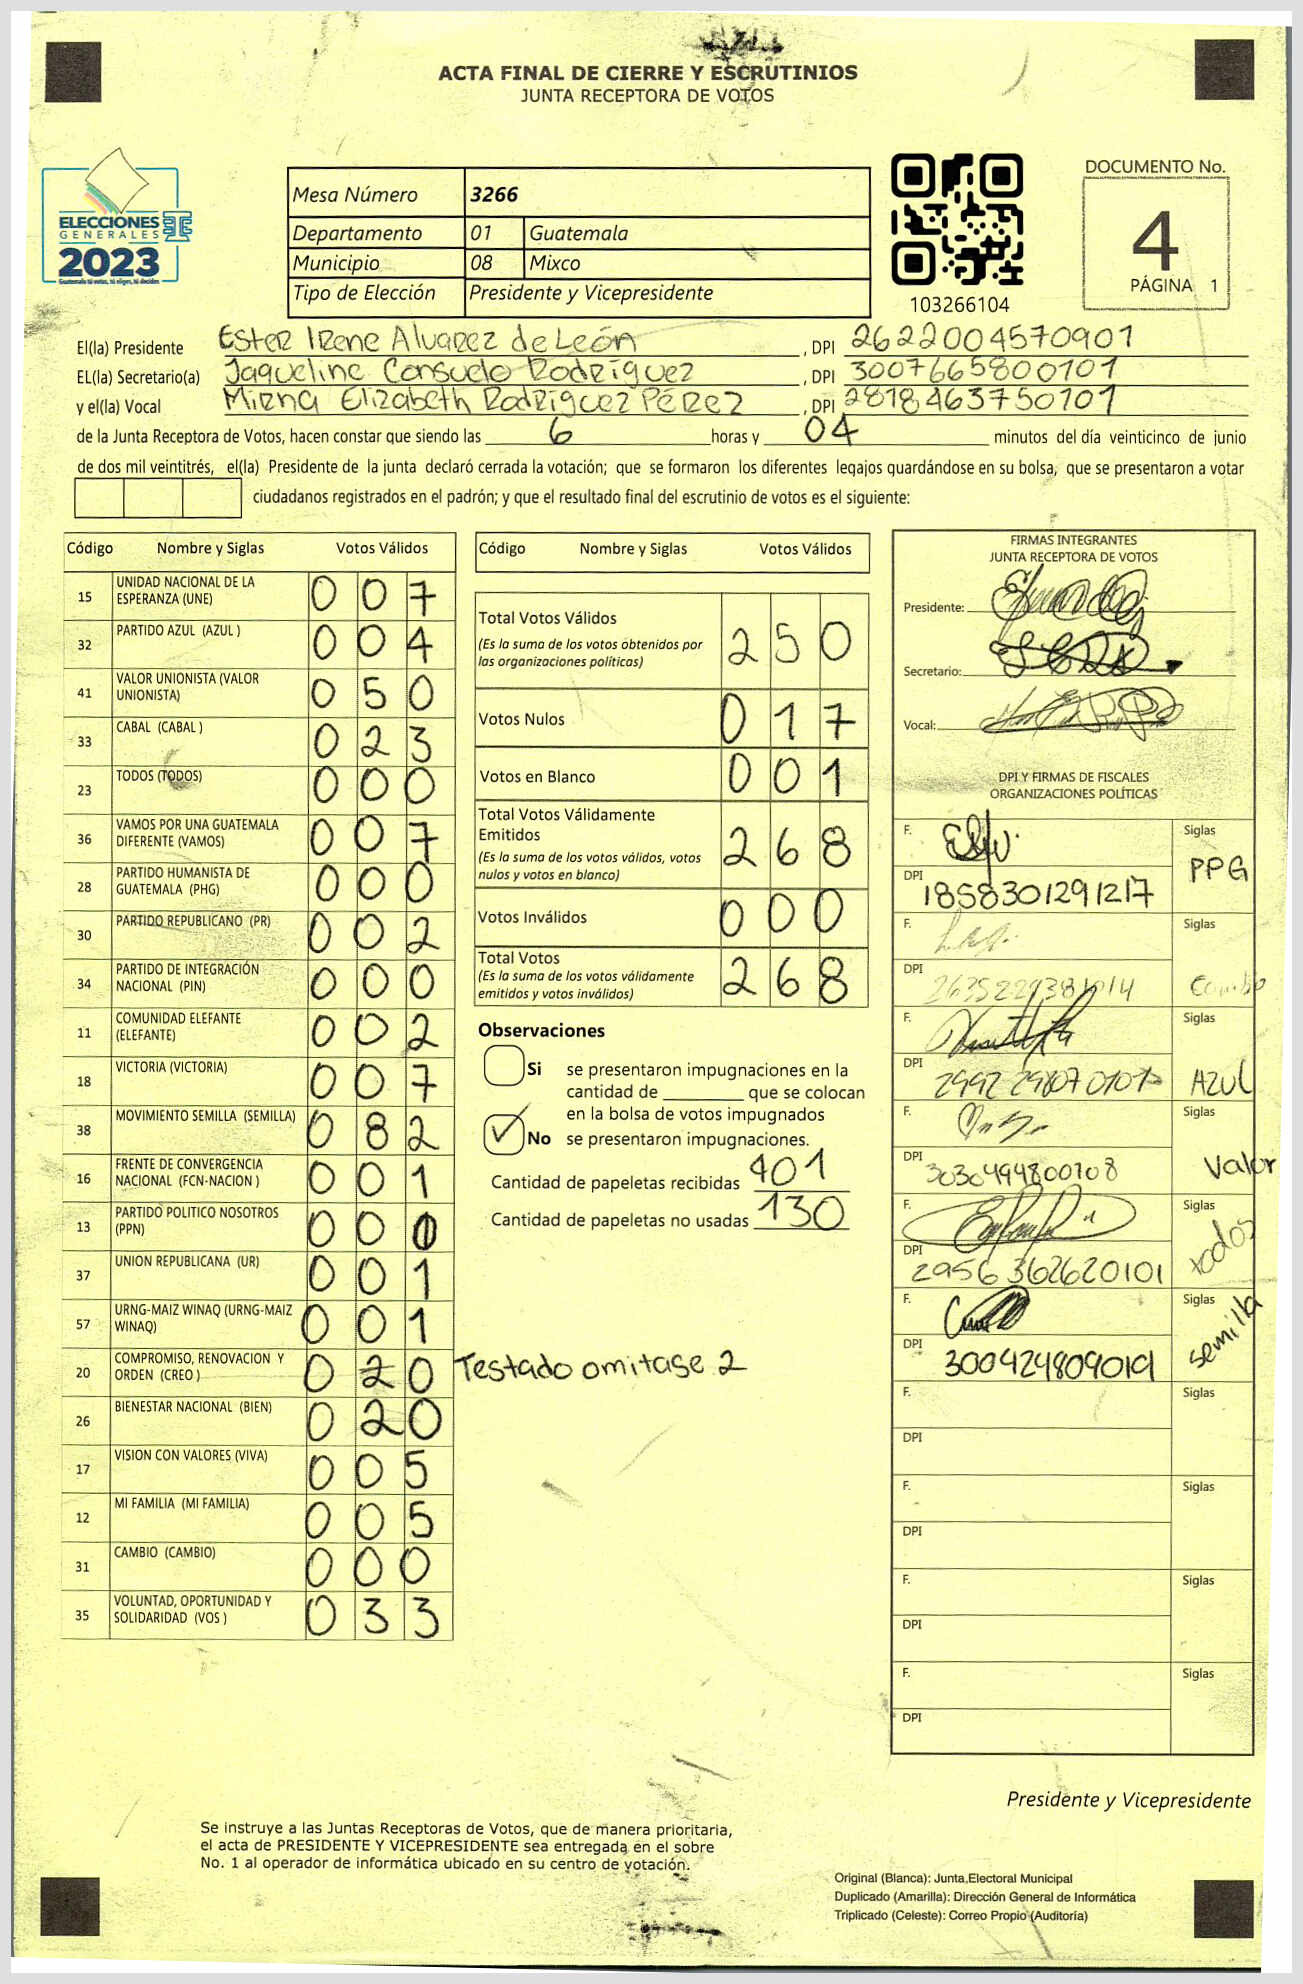 ACTA FINAL DE CIERRE Y ESCRUTINIOS
JUNTA RECEPTORA DE VOTOS
ELECCIONES
GENERALES
2023
Mesa Número 3266
Departamento 01 Guatemala
Municipio 08 Mixco
Tipo de Elección Presidente y Vicepresidente
103266104
DOCUMENTO No.
4
PÁGINA 1
El(la) Presidente Ester Irene Alvarez de León, DPI 2622004570901
EL(la) Secretario(a) Jaqueline Consuelo Rodríguez, DPI 3007665800101
y el(la) Vocal Mirna Elizabeth Rodríguez Pérez, DPI 2818463750101
de la Junta Receptora de Votos, hacen constar que siendo las 6 horas y 04 minutos del día veinticinco de junio
de dos mil veintitrés, el(la) Presidente de la junta declaró cerrada la votación; que se formaron los diferentes legajos guardándose en su bolsa, que se presentaron a votar
ciudadanos registrados en el padrón; y que el resultado final del escrutinio de votos es el siguiente:
Código Nombre y Siglas Votos Válidos
15 UNIDAD NACIONAL DE LA ESPERANZA (UNE) 0 0 7
32 PARTIDO AZUL (AZUL ) 0 0 4
41 VALOR UNIONISTA (VALOR UNIONISTA) 0 5 0
33 CABAL (CABAL ) 0 2 3
23 TODOS (TODOS) 0 0 0
36 VAMOS POR UNA GUATEMALA DIFERENTE (VAMOS) 0 0 7
28 PARTIDO HUMANISTA DE GUATEMALA (PHG) 0 0 0
30 PARTIDO REPUBLICANO (PR) 0 0 2
34 PARTIDO DE INTEGRACIÓN NACIONAL (PIN) 0 0 0
11 COMUNIDAD ELEFANTE (ELEFANTE) 0 0 2
18 VICTORIA (VICTORIA) 0 0 7
38 MOVIMIENTO SEMILLA (SEMILLA) 0 8 2
16 FRENTE DE CONVERGENCIA NACIONAL (FCN-NACION ) 0 0 1
13 PARTIDO POLITICO NOSOTROS (PPN) 0 0 0
37 UNION REPUBLICANA (UR) 0 0 1
57 URNG-MAIZ WINAQ (URNG-MAIZ WINAQ) 0 0 1
20 COMPROMISO, RENOVACION Y ORDEN (CREO ) 0 2 0 Testado omitase 2
26 BIENESTAR NACIONAL (BIEN) 0 2 0
17 VISION CON VALORES (VIVA) 0 0 5
12 MI FAMILIA (MI FAMILIA) 0 0 5
31 CAMBIO (CAMBIO) 0 0 0
35 VOLUNTAD, OPORTUNIDAD Y SOLIDARIDAD (VOS ) 0 3 3
Código Nombre y Siglas Votos Válidos
Total Votos Válidos 2 5 0
(Es la suma de los votos obtenidos por
las organizaciones políticas)
Votos Nulos 0 1 7
Votos en Blanco 0 0 1
Total Votos Válidamente
Emitidos 2 6 8
(Es la suma de los votos válidos, votos
nulos y votos en blanco)
Votos Inválidos 0 0 0
Total Votos 2 6 8
(Es la suma de los votos válidamente
emitidos y votos inválidos)
Observaciones
Si se presentaron impugnaciones en la
cantidad de ________ que se colocan
en la bolsa de votos impugnados
No se presentaron impugnaciones.
Cantidad de papeletas recibidas 401
Cantidad de papeletas no usadas 130
FIRMAS INTEGRANTES
JUNTA RECEPTORA DE VOTOS
Presidente:
Secretario:
Vocal:
DPI Y FIRMAS DE FISCALES
ORGANIZACIONES POLÍTICAS
F. Siglas
DPI 1858301291217 PPG
F. Siglas
DPI Cambio
F. Siglas
DPI AZUL
F. Siglas
DPI 3030494800108 Valor
F. Siglas
DPI 2956362620101 todos
F. Siglas
DPI 300424809019 semilla
F. Siglas
DPI
F. Siglas
DPI
F. Siglas
DPI
F. Siglas
DPI
Presidente y Vicepresidente
Se instruye a las Juntas Receptoras de Votos, que de manera prioritaria,
el acta de PRESIDENTE Y VICEPRESIDENTE sea entregada en el sobre
No. 1 al operador de informática ubicado en su centro de votación.
Original (Blanca): Junta Electoral Municipal
Duplicado (Amarilla): Dirección General de Informática
Triplicado (Celeste): Correo Propio (Auditoría)